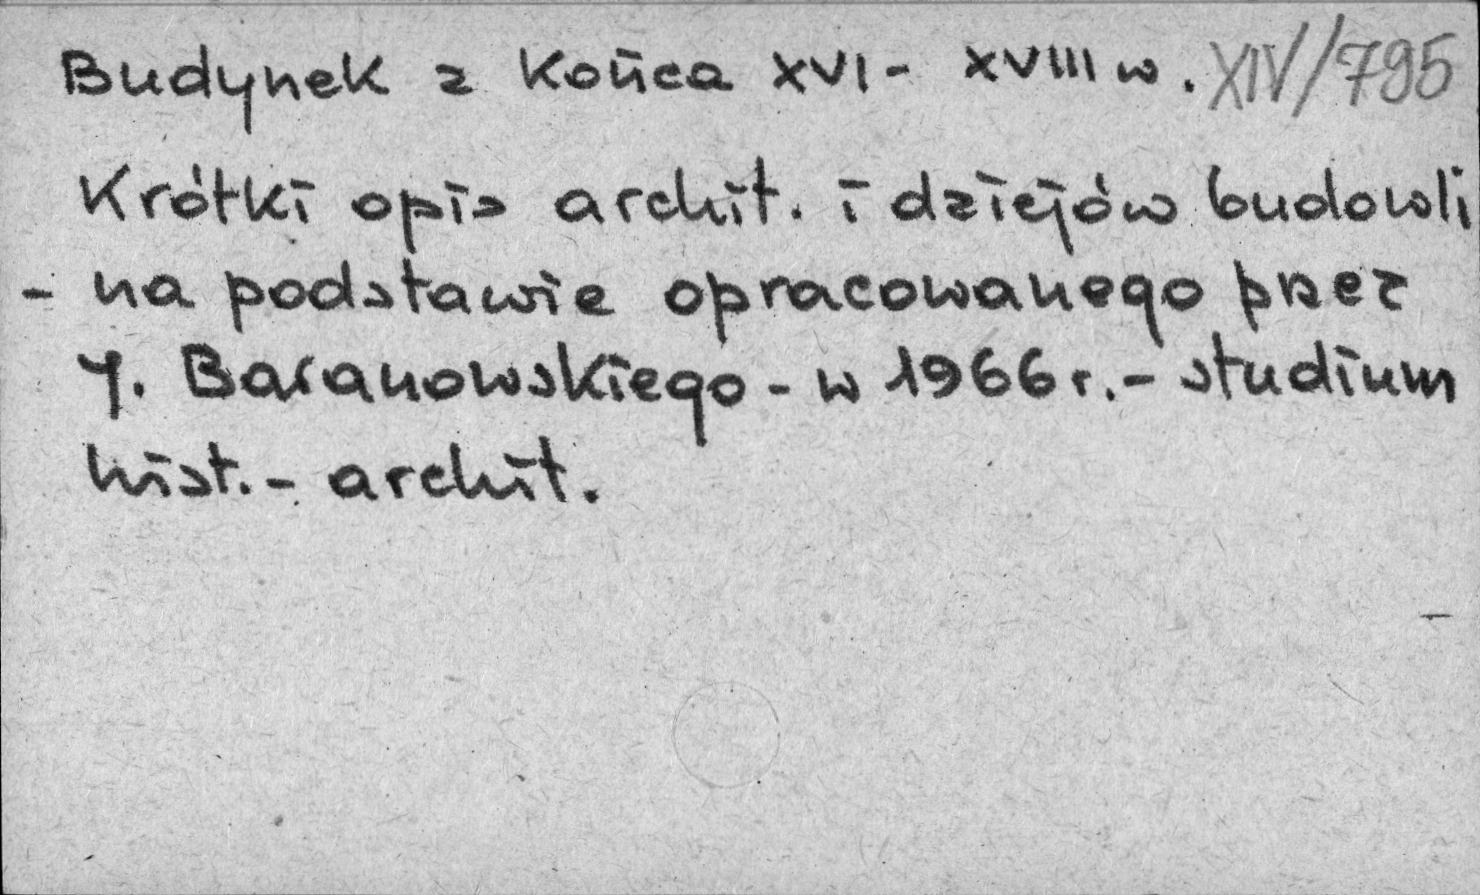 Budynek z końca XVI - XVIII w. XIV/795
Krótki opis archit. i dziejów budowli
- na podstawie opracowanego przez
J. Baranowskiego - w 1966 r. - studium
hist. - archit.